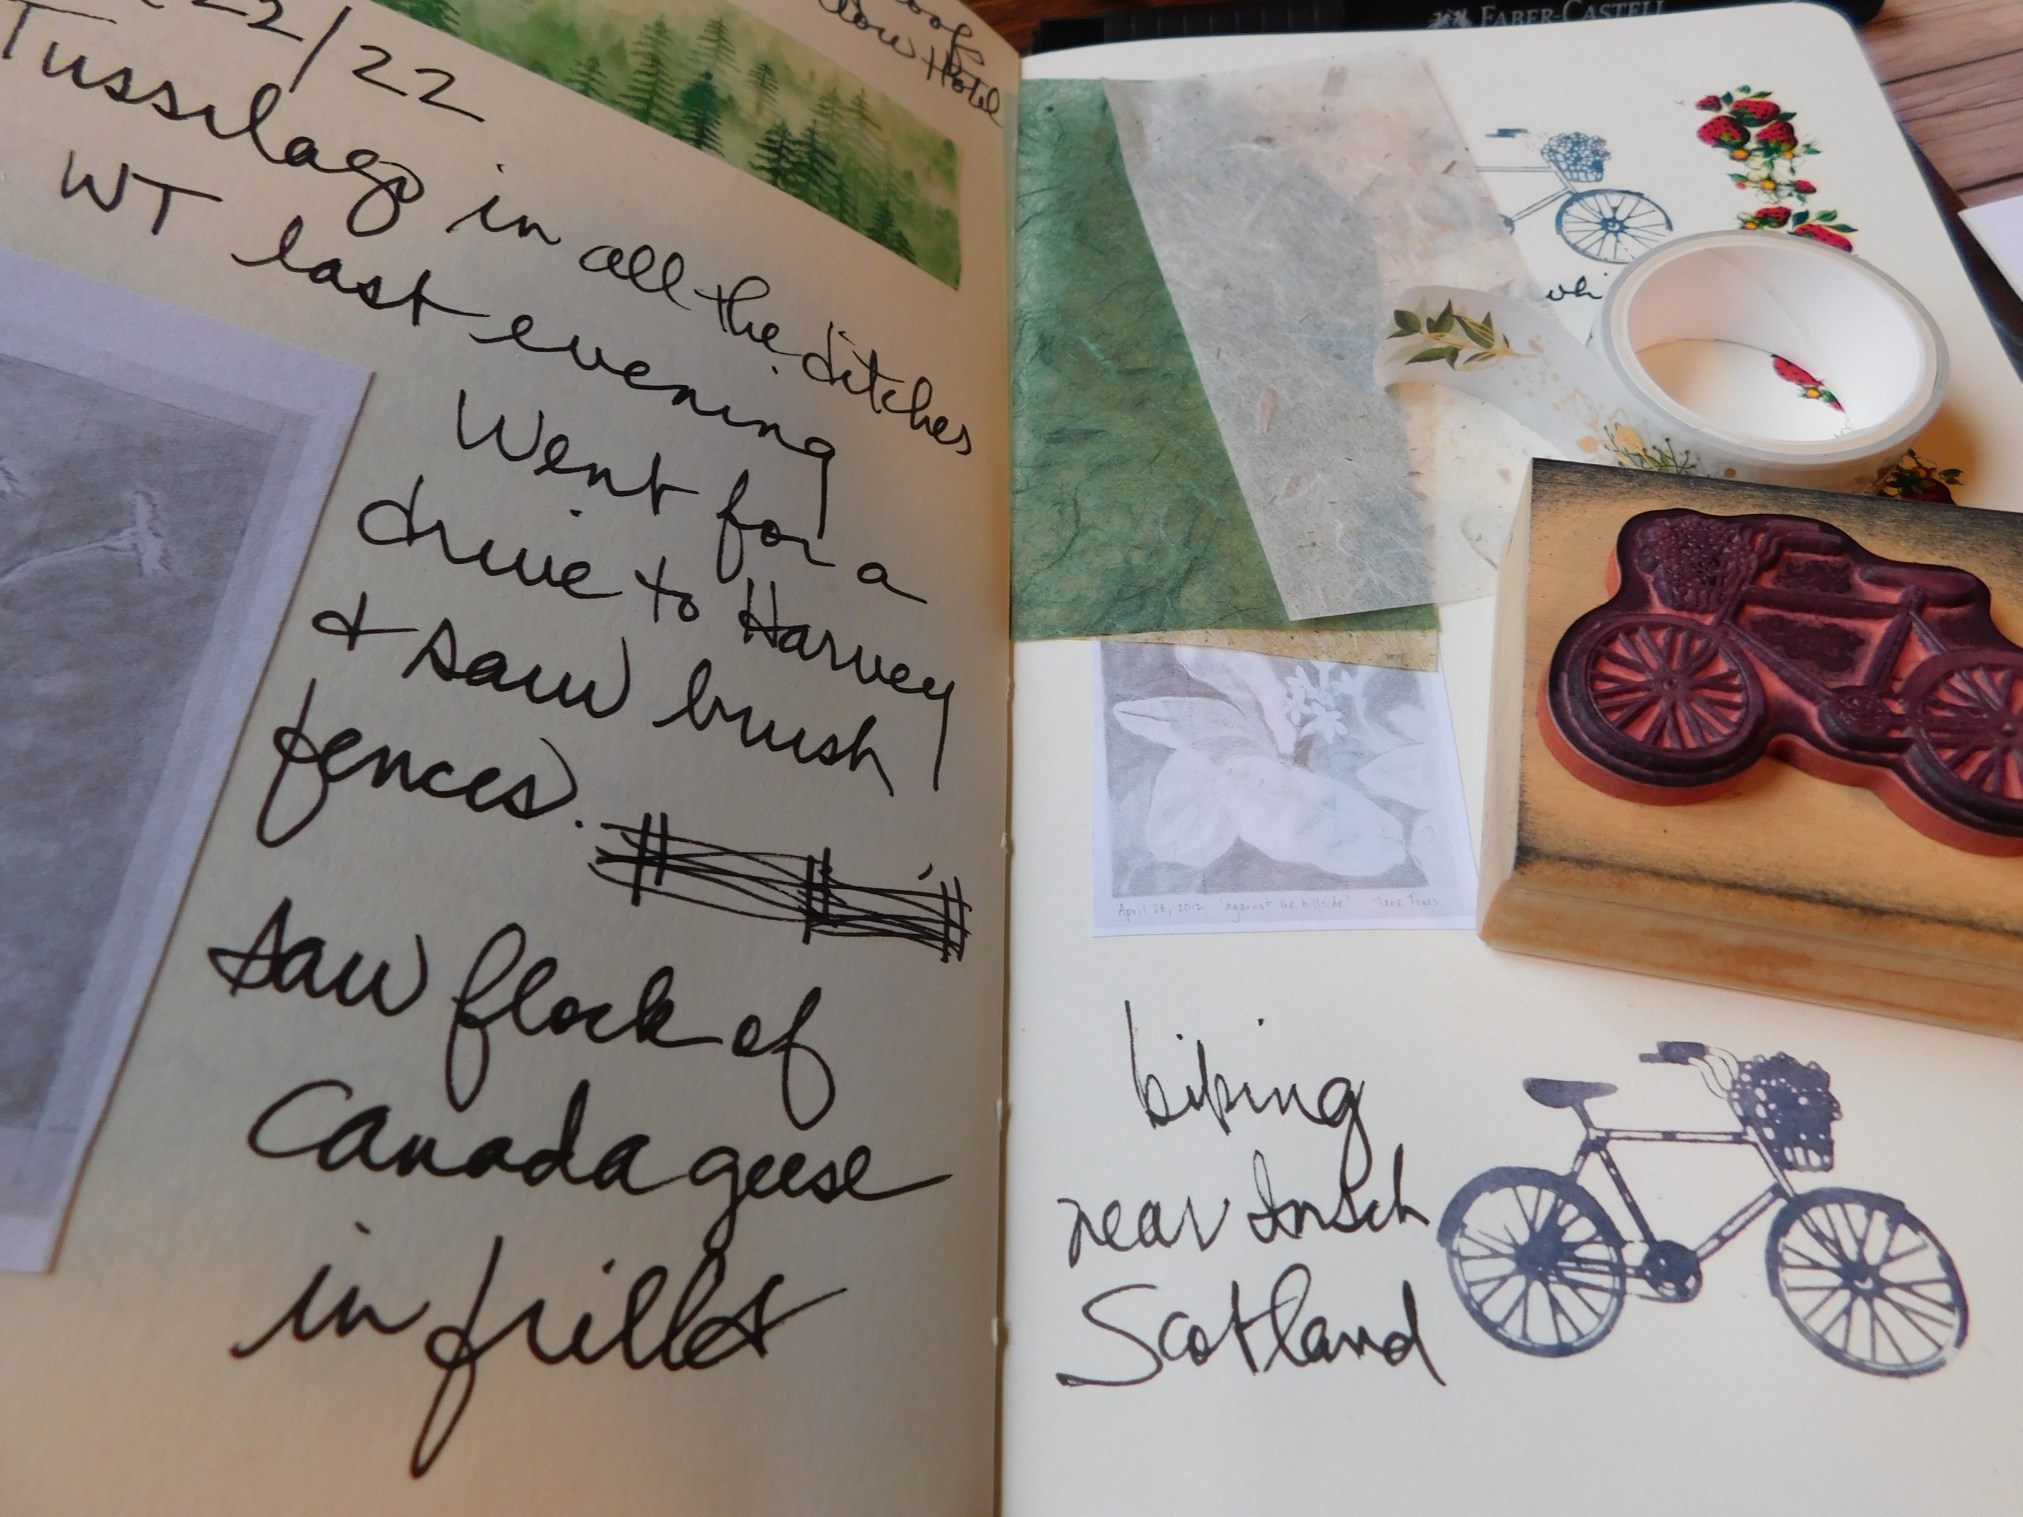 22/22
Tussilago in all the ditches
WT last evening
Went for a
drive to Harvey
& saw brush
fences.
saw flock of
Canada geese
in fields
Hotel
FABER-CASTELL
April 28, 2012 "against the hillside"
biking
near Insch
Scotland